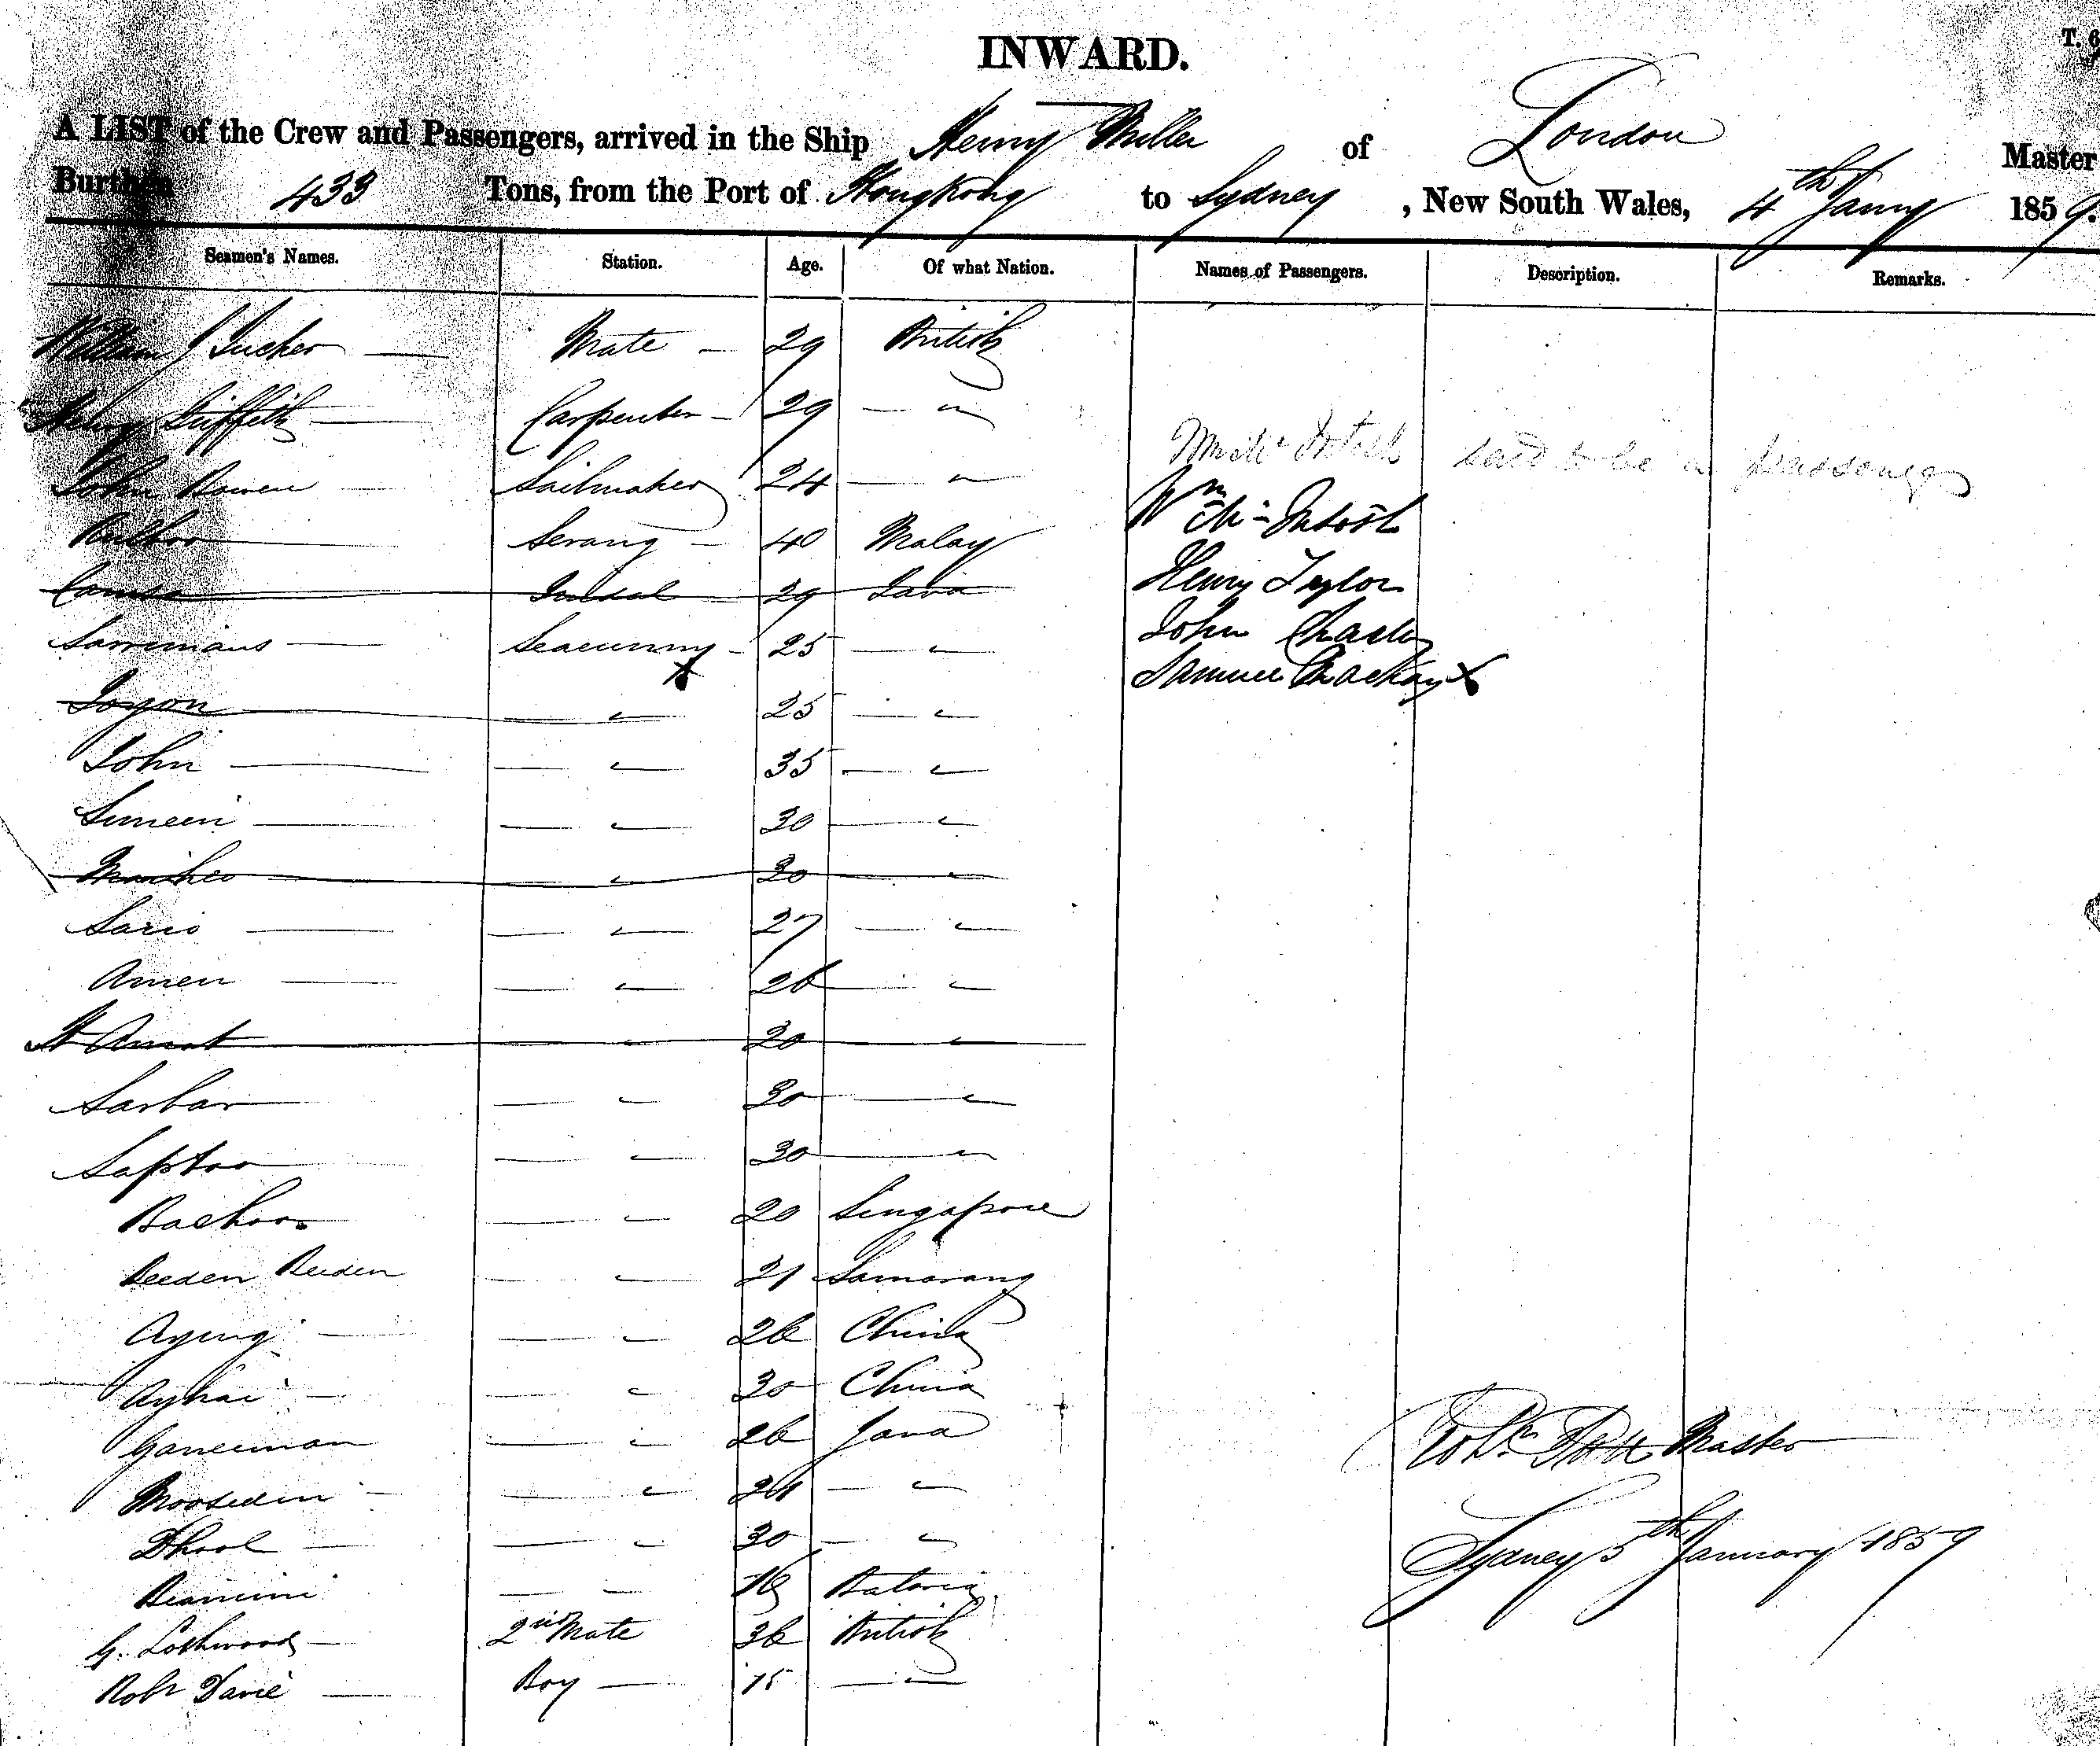 INWARD.
T. 6
A LIST of the Crew and Passengers, arrived in the Ship Henry Miller of London Master
Burthen 433 Tons, from the Port of Hongkong to Sydney, New South Wales, 4th Jany 1859.
Seamen's Names. Station. Age. Of what Nation. Names of Passengers. Description. Remarks.
William J Tucker — Mate — 29 British
Henry Griffith — Carpenter — 29 — "
said to be a passenger
John Bowen — Sailmaker 24 — "
Wm Mc Intosh
Serang — 40 Malay
Henry Taylor
29 Java
John
Seacunny — 25 — "
Samuel Mackay x
x
— " 25 — "
John — — " 35 — "
Simein — — " 30 — "
— " 30 — "
Sario — — " 27 — "
Amen — — " 26 — "
Amat — " 20 — "
Sarbar — — " 30 — "
Saptoo — — " 30 — "
Bachoo — " 20 Singapore
Deeden Deeden — " 21 Samarang
Ayung — — " 26 China
Ayhai — — " 30 China
Ganeeman — " 26 Java
Master
Mooseden — — " 24 — "
Dhool — — " 30 — "
Sydney 5th January 1859
— " 16 Batavia
G. Lockwood — 2nd Mate 36 British
Robt Davie — Boy — 15 — "